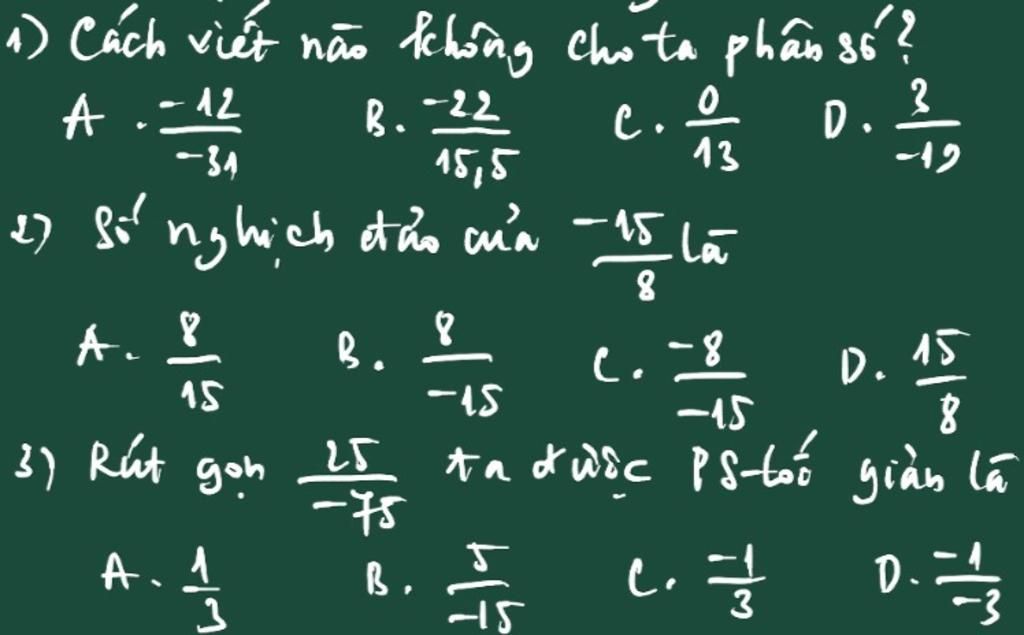 1) Cách viết nào không cho ta phân số?
A. \frac{-12}{-31} B. \frac{-22}{15,5} C. \frac{0}{13} D. \frac{3}{-19}
2) Số nghịch đảo của \frac{-15}{8} là
A. \frac{8}{15} B. \frac{8}{-15} C. \frac{-8}{-15} D. \frac{15}{8}
3) Rút gọn \frac{25}{-75} ta được PS tối giản là
A. \frac{1}{3} B. \frac{5}{-15} C. \frac{-1}{3} D. \frac{-1}{-3}